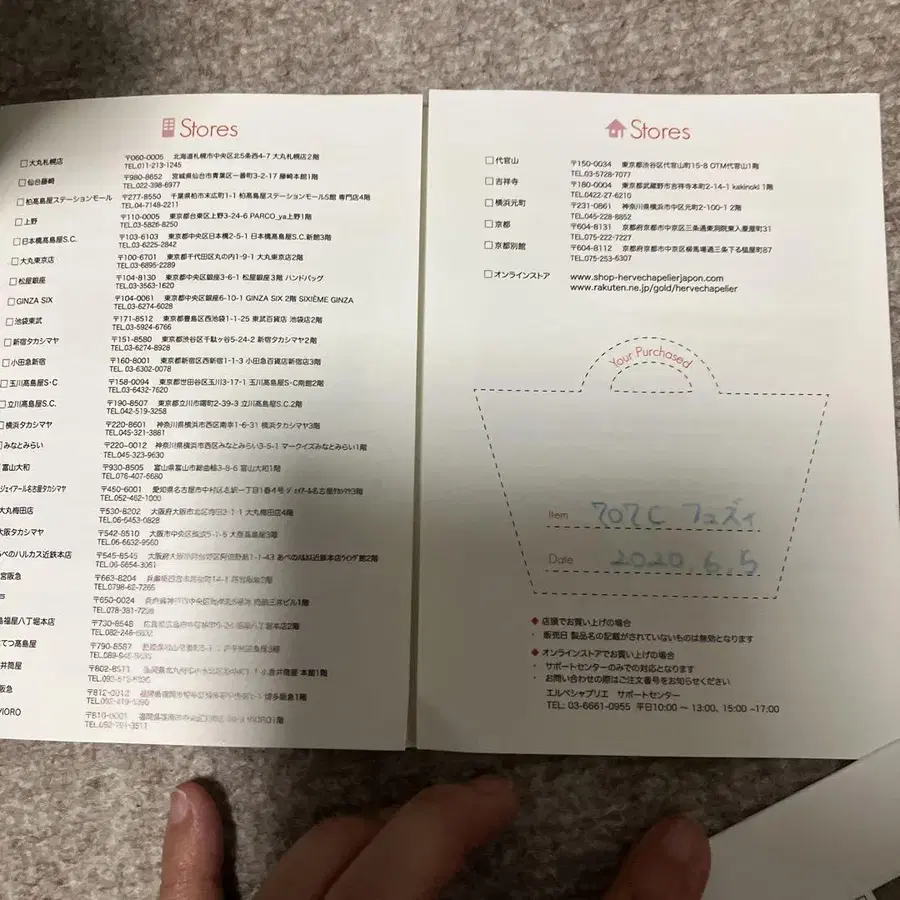 Stores
大丸札幌店 〒060-0005 北海道札幌市中央区北5条西4-7 大丸札幌店2階
TEL.011-213-1245
仙台藤崎 〒980-8652 宮城県仙台市青葉区一番町3-2-17 藤崎本館1階
TEL.022-398-6977
柏髙島屋ステーションモール 〒277-8550 千葉県柏市末広町1-1 柏髙島屋ステーションモールS館 専門店4階
TEL.04-7148-2211
上野 〒110-0005 東京都台東区上野3-24-6 PARCO_ya上野1階
TEL.03-5826-8250
日本橋髙島屋S.C. 〒103-6103 東京都中央区日本橋2-5-1 日本橋髙島屋S.C.新館3階
TEL.03-6225-2842
大丸東京店 〒100-6701 東京都千代田区丸の内1-9-1 大丸東京店2階
TEL.03-6895-2289
松屋銀座 〒104-8130 東京都中央区銀座3-6-1 松屋銀座3階 ハンドバッグ
TEL.03-3563-1620
GINZA SIX 〒104-0061 東京都中央区銀座6-10-1 GINZA SIX 2階 SIXIÈME GINZA
TEL.03-6274-6028
池袋東武 〒171-8512 東京都豊島区西池袋1-1-25 東武百貨店 池袋店2階
TEL.03-5924-6766
新宿タカシマヤ 〒151-8580 東京都渋谷区千駄ヶ谷5-24-2 新宿タカシマヤ2階
TEL.03-6274-8928
小田急新宿 〒160-8001 東京都新宿区西新宿1-1-3 小田急百貨店新宿店3階
TEL.03-6302-0078
玉川髙島屋S・C 〒158-0094 東京都世田谷区玉川3-17-1 玉川髙島屋S・C南館2階
TEL.03-6432-7620
立川髙島屋S.C. 〒190-8507 東京都立川市曙町2-39-3 立川髙島屋S.C.2階
TEL.042-519-3258
横浜タカシマヤ 〒220-8601 神奈川県横浜市西区南幸1-6-31 横浜タカシマヤ3階
TEL.045-321-3881
みなとみらい 〒220-0012 神奈川県横浜市西区みなとみらい3-5-1 マークイズみなとみらい1階
TEL.045-323-9630
富山大和 〒930-8505 富山県富山市総曲輪3-8-6 富山大和1階
TEL.076-407-5680
ジェイアール名古屋タカシマヤ 〒450-6001 愛知県名古屋市中村区名駅一丁目1番4号 ジェイアール名古屋タカシマヤ3階
TEL.052-462-1000
大丸梅田店 〒530-8202 大阪府大阪市北区梅田3-1-1 大丸梅田店4階
TEL.06-6453-0828
大阪タカシマヤ 〒542-8510 大阪市中央区難波5-1-5 大阪髙島屋3階
TEL.06-6632-9560
べのハルカス近鉄本店 〒545-8545 大阪府大阪市阿倍野区阿倍野筋1-1-43 あべのハルカス近鉄本店ウイング館2階
TEL.06-6654-3061
宮阪急 〒663-8204
TEL.0798-62-7265
〒650-0024
TEL.078-381-7298
福屋八丁堀本店 〒730-8548
てつ髙島屋 〒790-8587
井筒屋
阪急
VIORO
Stores
代官山 〒150-0034 東京都渋谷区代官山町15-8 OTM代官山1階
TEL.03-5728-7077
吉祥寺 〒180-0004 東京都武蔵野市吉祥寺本町2-14-1 kakinoki 1階
TEL.0422-27-6210
横浜元町 〒231-0861 神奈川県横浜市中区元町2-100-1 2階
TEL.045-228-8852
京都 〒604-8131 京都府京都市中京区三条通東洞院東入菱屋町31
TEL.075-222-7227
京都別館 〒604-8112 京都府京都市中京区柳馬場通三条下る槌屋町87
TEL.075-253-6307
オンラインストア www.shop-hervechapelierjapon.com
www.rakuten.ne.jp/gold/hervechapelier
Your Purchased
Item 707C フュズィ
Date 2020.6.5
◆ 店頭でお買い上げの場合
・ 販売日 製品名の記載がされていないものは無効となります
◆ オンラインストアでお買い上げの場合
・ サポートセンターのみでの対応となります
・ お問い合わせの際はご注文番号をお知らせください
エルベシャプリエ サポートセンター
TEL: 03-6661-0955 平日10:00 〜 13:00、15:00 〜17:00